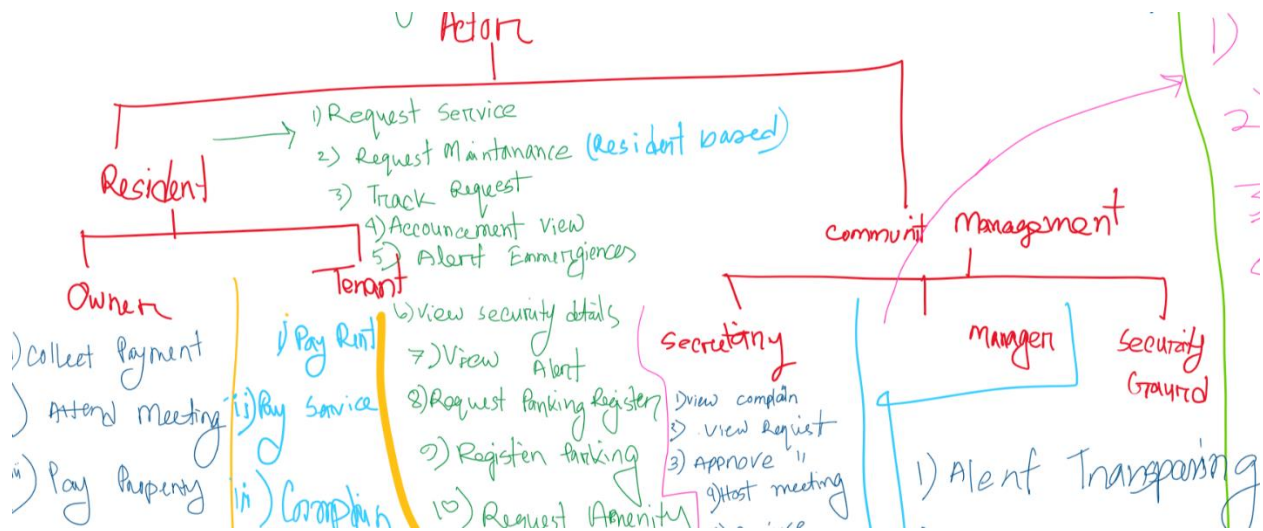 Actor
1) Request Service
2) Request Maintanance (Resident based)
3) Track Request
4) Accouncement View
5) Alert Emmergiences
6) View security details
7) View Alert
8) Request Parking Register
9) Register Parking
10) Request Amenity
Resident
Owner
) Collect Payment
) Attend Meeting
) Pay Property
Tenant
i) Pay Rent
ii) Pay Service
iii) Complain
Communit Management
Secretary
1) view complain
2) View Request
3) Approve "
9) Host meeting
Manager
Security
Gaurd
1) Alert
1)
2)